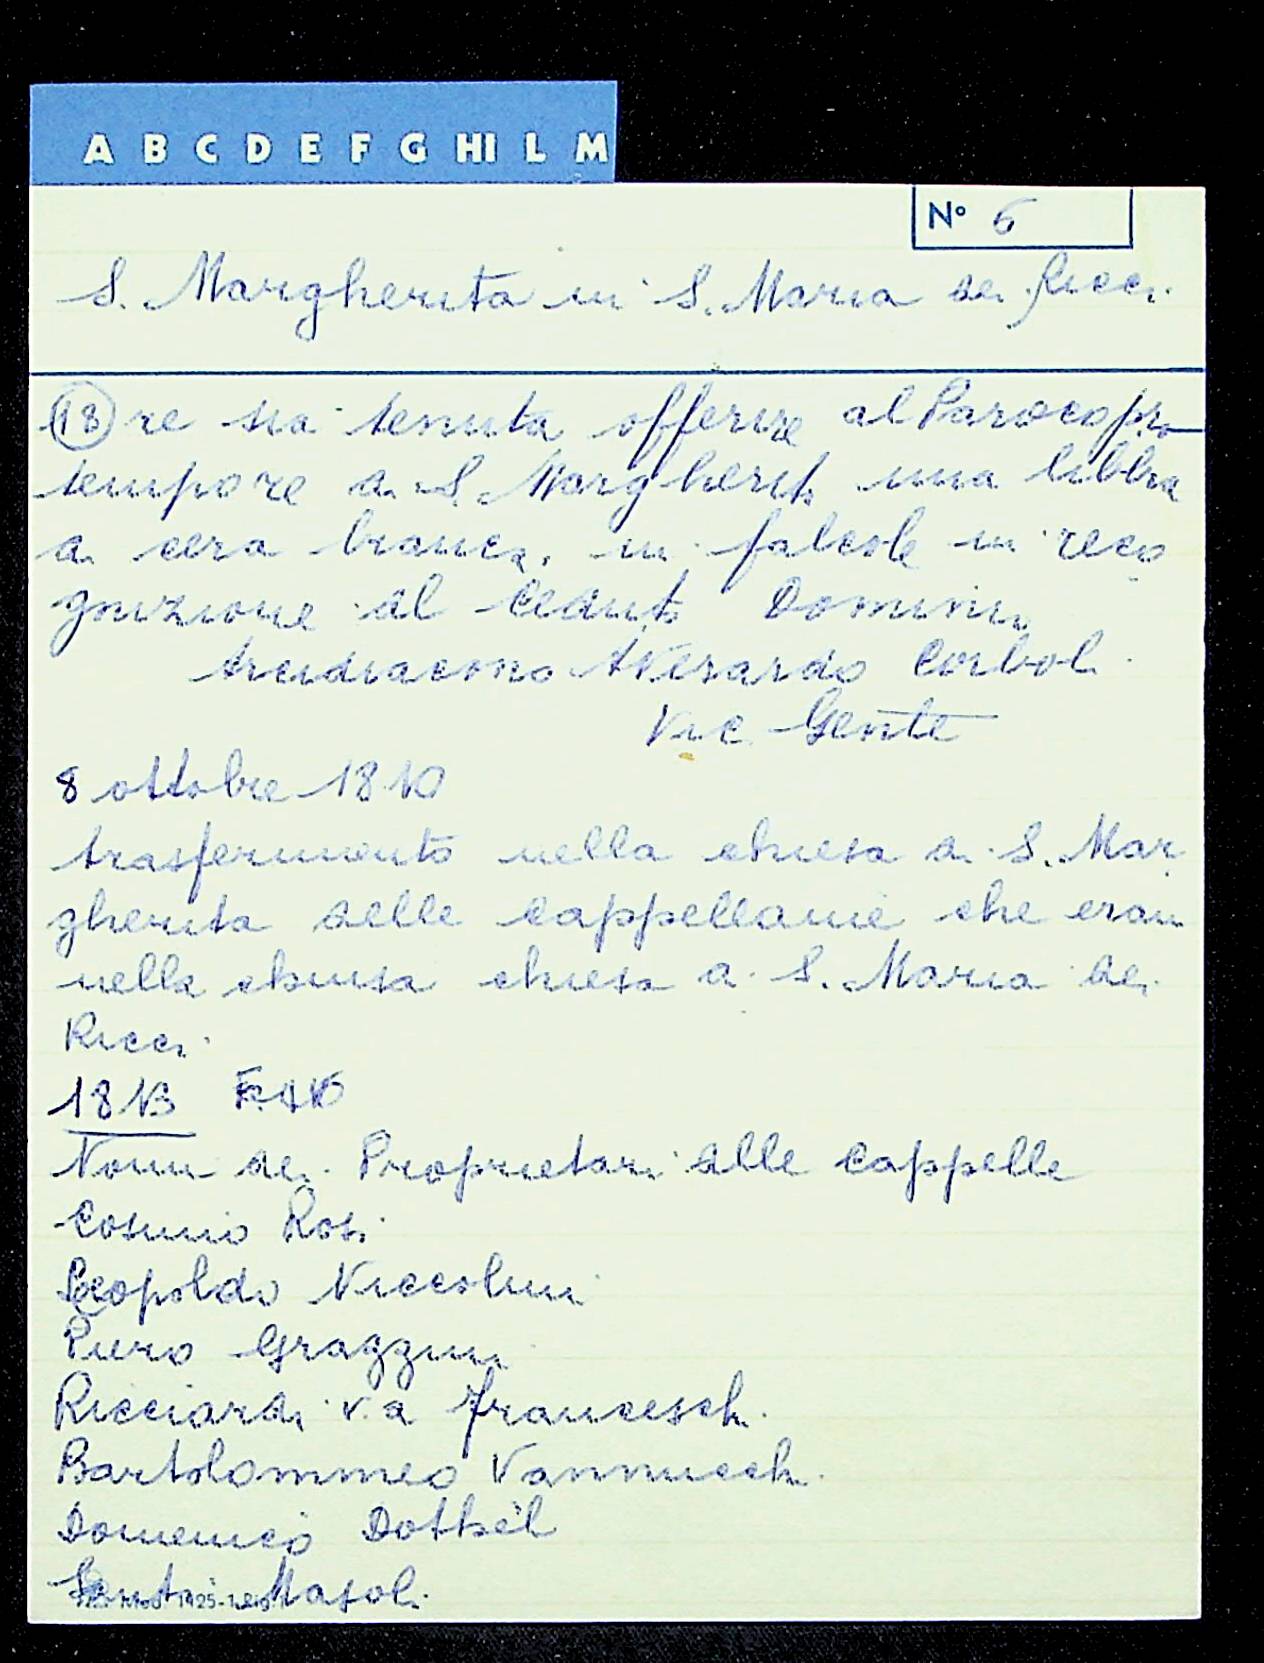 A B C D E F G HI L M
N° 6
S. Margherita in S. Maria dei Ricci
(18) re sia tenuta offerire al Paroco pro
tempore di S. Margherita una libbra
di cera bianca, in falcole in reco
gnizione del Domini
Arcidiacono Averardo Corboli
Vic. Genle
8 ottobre 1810
trasferimento nella chiesa di S. Mar
gherita delle cappellanie che erano
nella chiusa chiesa di S. Maria dei
Ricci.
1813
Nomi dei Proprietari delle cappelle
Cosimo Rosi
Leopoldo Niccolini
Piero Grazzini
Ricciardi v.a Franceschi
Bartolommeo Vannucchi
Domenico
Masoli